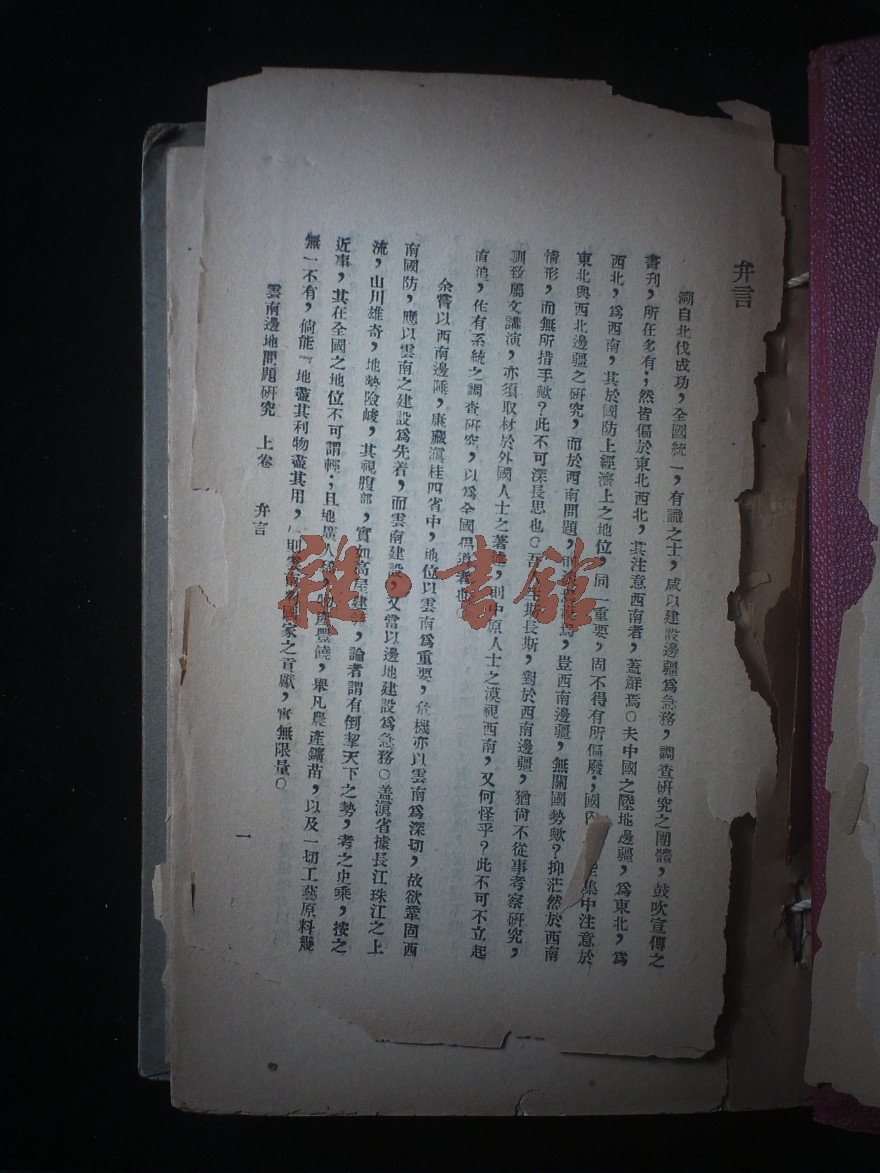 弁言
溯自北伐成功，全國統一，有識之士，咸以建設邊疆爲急務，調查研究之團體，鼓吹宣傳之
書刊，所在多有；然皆偏於東北西北，其注意西南者，蓋鮮焉。夫中國之陸地邊疆，爲東北，爲
西北，爲西南，其於國防上經濟上之地位，同一重要，固不得有所偏廢；國集中注意於
東北與西北邊疆之研究，而於西南問題，豈西南邊疆，無關國勢歟？抑茫然於西南
情形，而無所措手歟？此不可深長思也。吾人生斯長斯，對於西南邊疆，猶尙不從事考察研究，
馴致屬文講演，亦須取材於外國人士之著述，則中原人士之漠視西南，又何怪乎？此不可不立起
直追，作有系統之調查研究，以爲全國倡導者也
余嘗以西南邊陲，康藏滇桂四省中，地位以雲南爲重要，危機亦以雲南爲深切，故欲鞏固西
南國防，應以雲南之建設爲先着，而雲南建設，又當以邊地建設爲急務。蓋滇省據長江珠江之上
流，山川雄奇，地勢險峻，其視腹部，實如高屋建，論者謂有倒挈天下之勢，考之史乘，按之
近事，其在全國之地位不可謂輕；且地廣人，物產豐饒，舉凡農產鑛苗，以及一切工藝原料幾
無一不有，倘能『地盡其利物盡其用，』則雲南國家之貢獻，實無限量。
雲南邊地問題研究 上卷 弁言
一
雜·書館